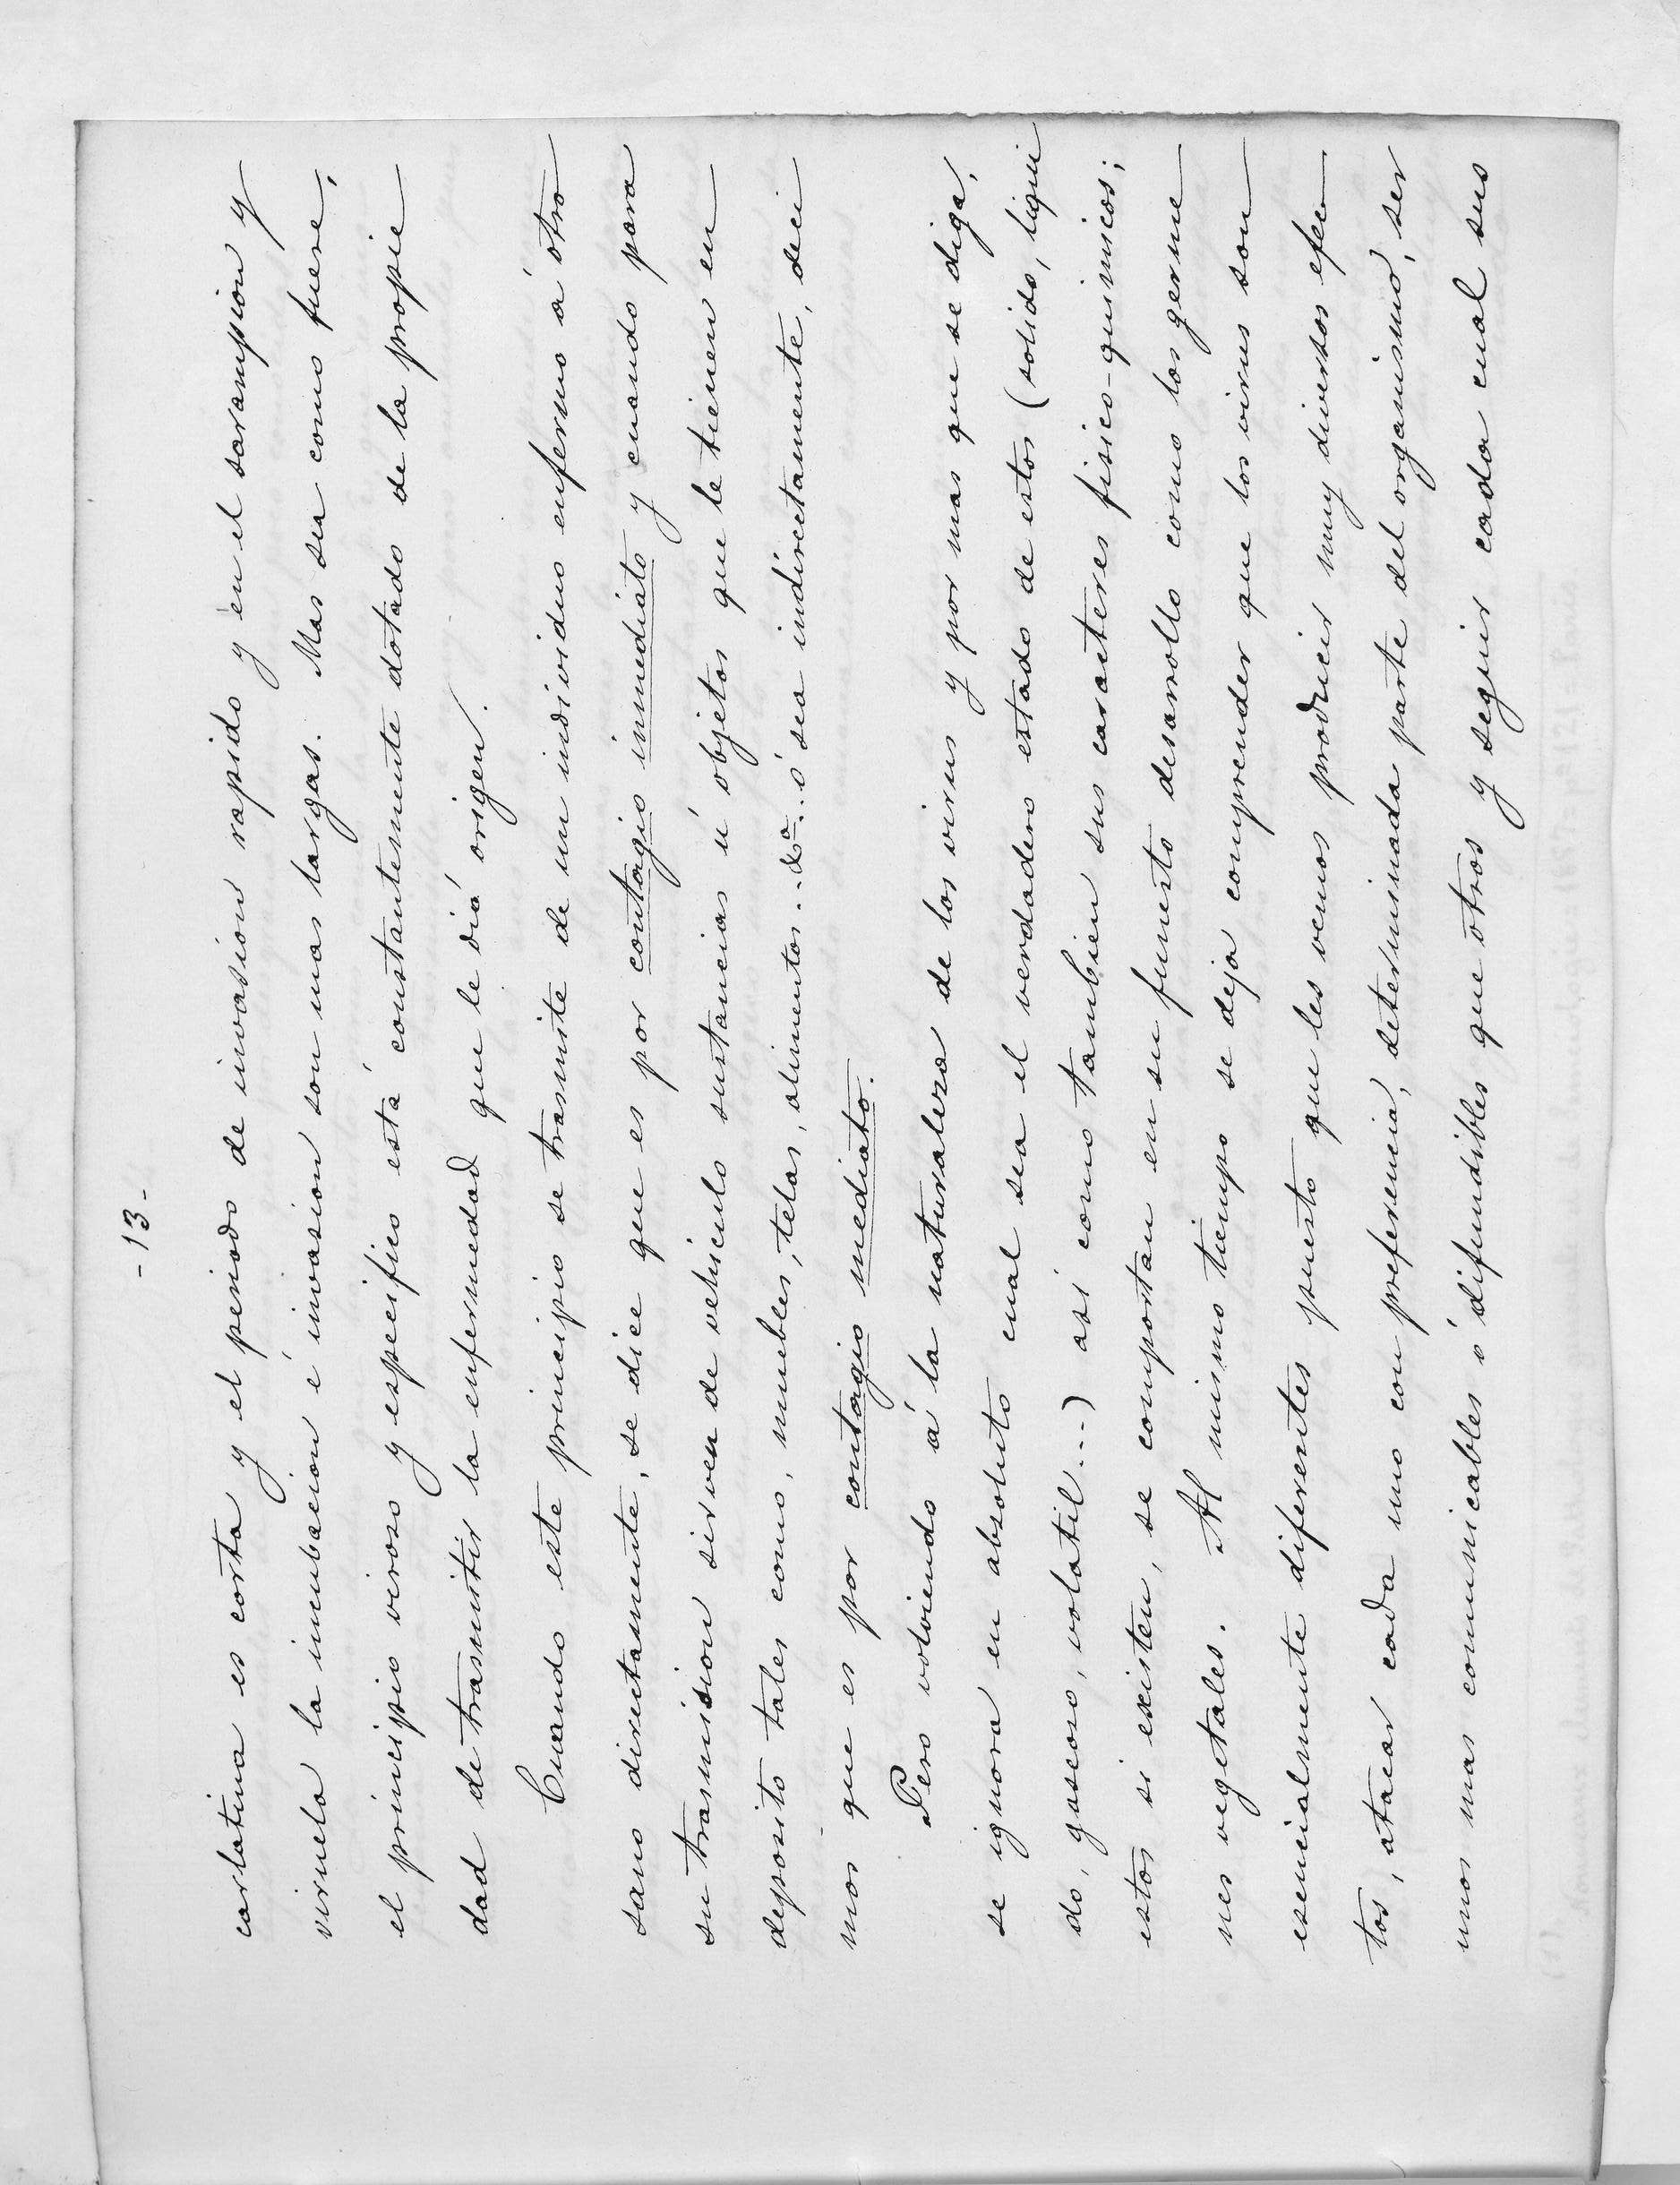 - 13 -
carlatina es corta y el periodo de invasion rapido y en el sarampion y
viruela la incubacion é invasion son mas largas. Mas sea como fuere,
el principio viroso y especifico está constantemente dotado de la propie
dad de trasmitir la enfermedad que le dió origen.
Cuando este principio se trasmite de un individuo enfermo á otro
sano directamente, se dice que es por contagio inmediato y cuando para
su trasmision sirven de vehiculo sustancias ú objetos que le tienen en
deposito tales como, muebles, telas, alimentos... &ª. ó sea indirectamente, deci
mos que es por contagio mediato.
Pero volviendo á la naturaleza de los virus y por mas que se diga,
se ignora en absoluto cual sea el verdadero estado de estos (solido, liqui
do, gaseoso, volatil...) asi como tambien sus caracteres fisico-quimicos;
estos si existen, se comportan en su funesto desarrollo como los germe
nes vegetales. Al mismo tiempo se deja comprender que los virus son
esencialmente diferentes puesto que les vemos producir muy diversos efec
tos, atacar cada uno con preferencia, determinada parte del organismo, ser
unos mas comunicables ó difundibles que otros y seguir cada cual sus